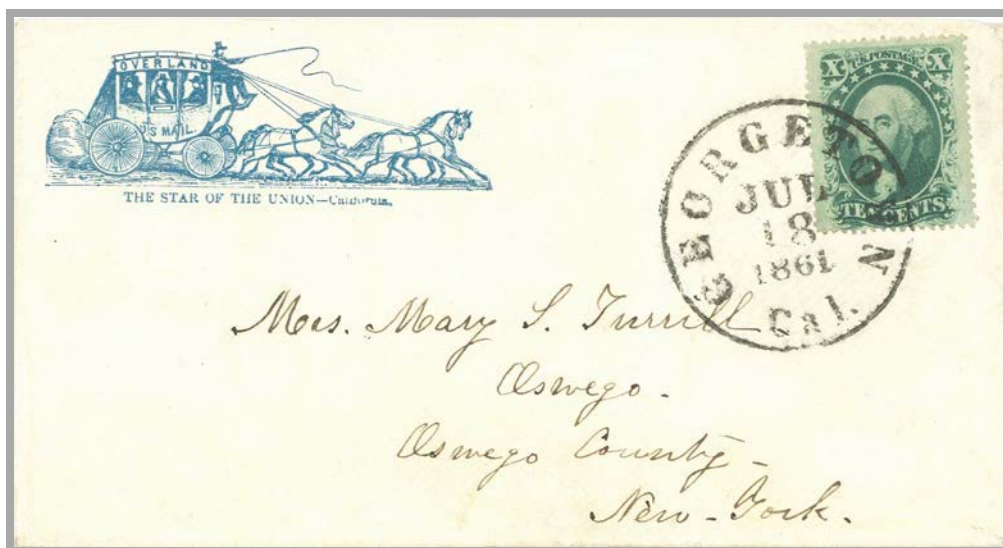 OVERLAND
U S MAIL.
THE STAR OF THE UNION—California.
U.S. POSTAGE
X X
TEN CENTS.
GEORGETOWN
JUL
18
1861
Cal.
Mrs. Mary S. Turrill
Oswego.
Oswego County-
New-York.